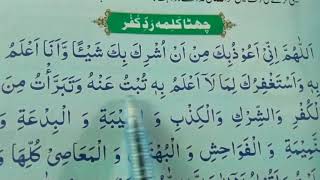 چھٹا کلمہ ردِّ کُفر
اَللّٰهُمَّ اِنِّیْ اَعُوْذُبِكَ مِنْ اَنْ اُشْرِكَ بِكَ شَیْئًا وَّاَنَا اَعْلَمُ
بِهٖ وَ اَسْتَغْفِرُكَ لِمَا لَآ اَعْلَمُ بِهٖ تُبْتُ عَنْهُ وَتَبَرَّأْتُ مِنَ
الْكُفْرِ وَالشِّرْكِ وَالْكِذْبِ وَ الْغِیْبَةِ وَ الْبِدْعَةِ وَ
النَّمِیْمَةِ وَ الْفَوَاحِشِ وَ الْبُهْتَانِ وَ الْمَعَاصِیْ كُلِّهَا